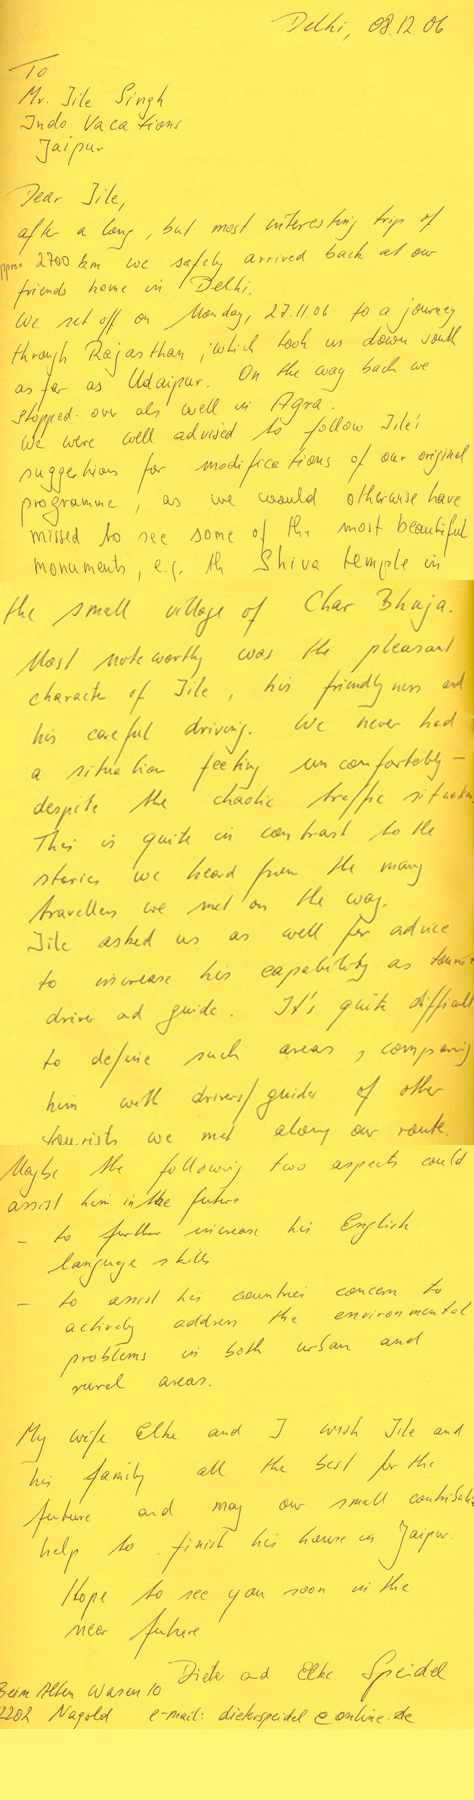 Delhi, 08.12.06
To
Mr. Jile Singh
Indo Vacations
Jaipur
Dear Jile,
after a long, but most interesting trip of
approx 2700 km we safely arrived back at our
friends home in Delhi.
We set off on Monday, 27.11.06 to a journey
through Rajasthan, which took us down south
as far as Udaipur. On the way back we
stopped over als well in Agra.
We were well advised to follow Jile's
suggestions for modifications of our original
programme, as we would otherwise have
missed to see some of the most beautiful
monuments, e.g. th Shiva temple in
the small village of Char Bhuja.
Most noteworthy was the pleasant
character of Jile, his friendlyness and
his careful driving. We never had
a situation feeling uncomfortably -
despite the chaotic traffic situation
This is quite in contrast to the
stories we heard from the many
travellers we met on the way.
Jile asked us as well for advice
to increase his capability as tourist
driver ad guide. It's quite difficult
to define such areas, comparing
him with drivers/guides of other
tourists we met along our route.
Maybe the following two aspects could
assist him in the future
- to further increase his English
language skills
- to assist his countries concern to
actively address the environmental
problems in both urban and
rural areas.
My wife Elke and I wish Jile and
his family all the best for the
future and may our small contributio
help to finish his house in Jaipur.
Hope to see you soon in the
near future
Dieter and Elke Speidel
Beim Alten Wasen 10
2202 Nagold e-mail: dieterspeidel@online.de